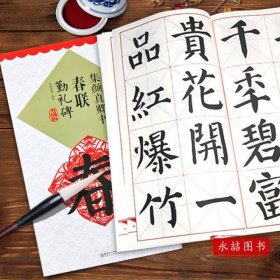 集颜真卿书
春联
勤礼碑
春
千禾碧富
貴花開一
品紅爆竹
永喆图书